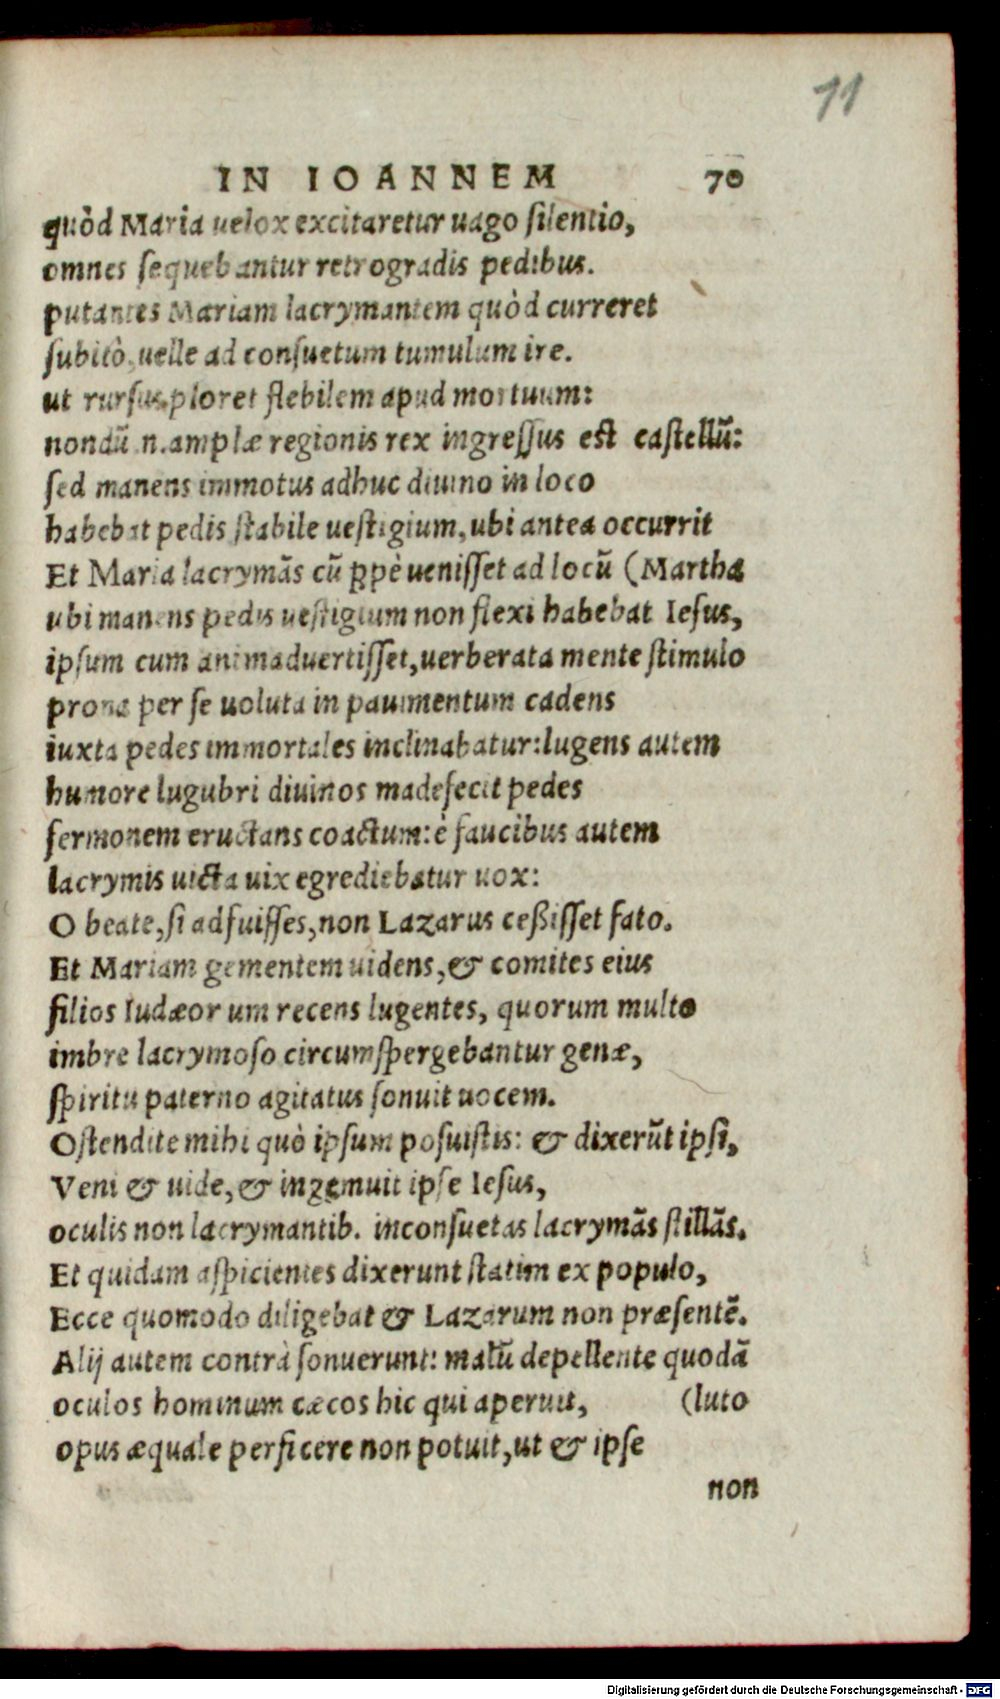 11
IN IOANNEM 70
quòd Maria uelox excitaretur uago silentio,
omnes sequebantur retrogradis pedibus.
putantes Mariam lacrymantem quòd curreret
subitò, uelle ad consuetum tumulum ire.
ut rursus ploret flebilem apud mortuum:
nondū .n. amplæ regionis rex ingressus est castellū:
sed manens immotus adhuc diuino in loco
habebat pedis stabile uestigium, ubi antea occurrit
Et Maria lacrymās cū ꝓpè uenisset ad locū (Martha
ubi manens pedis uestigium non flexi habebat Iesus,
ipsum cum animaduertisset, uerberata mente stimulo
prona per se uoluta in pauimentum cadens
iuxta pedes immortales inclinabatur: lugens autem
humore lugubri diuinos madefecit pedes
sermonem eructans coactum: è faucibus autem
lacrymis uicta uix egrediebatur uox:
O beate, si adfuisses, non Lazarus ceßisset fato.
Et Mariam gementem uidens, & comites eius
filios Iudæor um recens lugentes, quorum multo
imbre lacrymoso circumspergebantur genæ,
spiritu paterno agitatus sonuit uocem.
Ostendite mihi quò ipsum posuistis: & dixerūt ipsi,
Veni & uide, & ingemuit ipse Iesus,
oculis non lacrymantib. inconsuetas lacrymās stillās.
Et quidam aspicientes dixerunt statim ex populo,
Ecce quomodo diligebat & Lazarum non præsentē.
Alij autem contrà sonuerunt: malū depellente quodā
oculos hominum cæcos hic qui aperuit, (luto
opus æquale perficere non potuit, ut & ipse
non
Digitalisierung gefördert durch die Deutsche Forschungsgemeinschaft - DFG